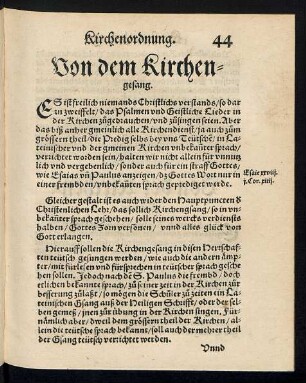 Kirchenordnung. 44
Von dem Kirchen-
gesang.
ES ist freilich niemands Christlichs verstands/ so dar
in zweiffelt/ das Psalmen und Geistliche Lieder in
der Kirchen zůgebrauchen/ und zůsingen seien. Aber
das biß anher gmeinlich alle Kirchendienst/ ja auch zům
grössern theil/ die Predig selbs bey uns Teütschē/ in La-
teinischer und der gmeinen Kirchen unbekañter sprach/
verrichtet worden sein/ halten wir nicht allein für unnutz
lich und vergebenlich/ sonder auch für ein straff Gottes/
wie Esaias uñ Paulus anzeigen/ dz Gottes Wort nur in
einer frembden/ unbekañten sprach geprediget werde.
Esaie xxviij.
j. Cor. xiiij.
Gleicher gestalt ist es auch wider den Hauptpuncten d
Christenlichen Lehr/ das sollich Kirchengsang/ so in un-
bekañter sprach geschehen/ solle jemds verdiensts
halben/ Gottes Zorn versonen/ unnd alles glück von
Gott erlangen.
Hierauff sollen die Kirchengesang in disen Herrschaff-
ten teütsch gesungen werden/ wie auch die andern ämp-
ter/ mit fürlesen und fürsprechen in teütscher sprach gesche
hen sollen. Jedoch nach dē S. Paulus die frembd/ doch
etlichen bekañte sprach/ zů seiner zeit in der Kirchen zůr
besserung zůlaßt/ so mögen die Schůler zů zeiten ein La-
teinischen Gsang auß der Heiligen Schrifft/ oder der sel-
ben gemeß/ jnen zůr übung in der Kirchen singen. Für-
nämlich aber/ dweil dem grössern theil der Kirchen/ al-
lein die teütsche sprach bekañt/ soll auch der mehrer theil
der Gsang teütsch verrichtet werden.
Unnd